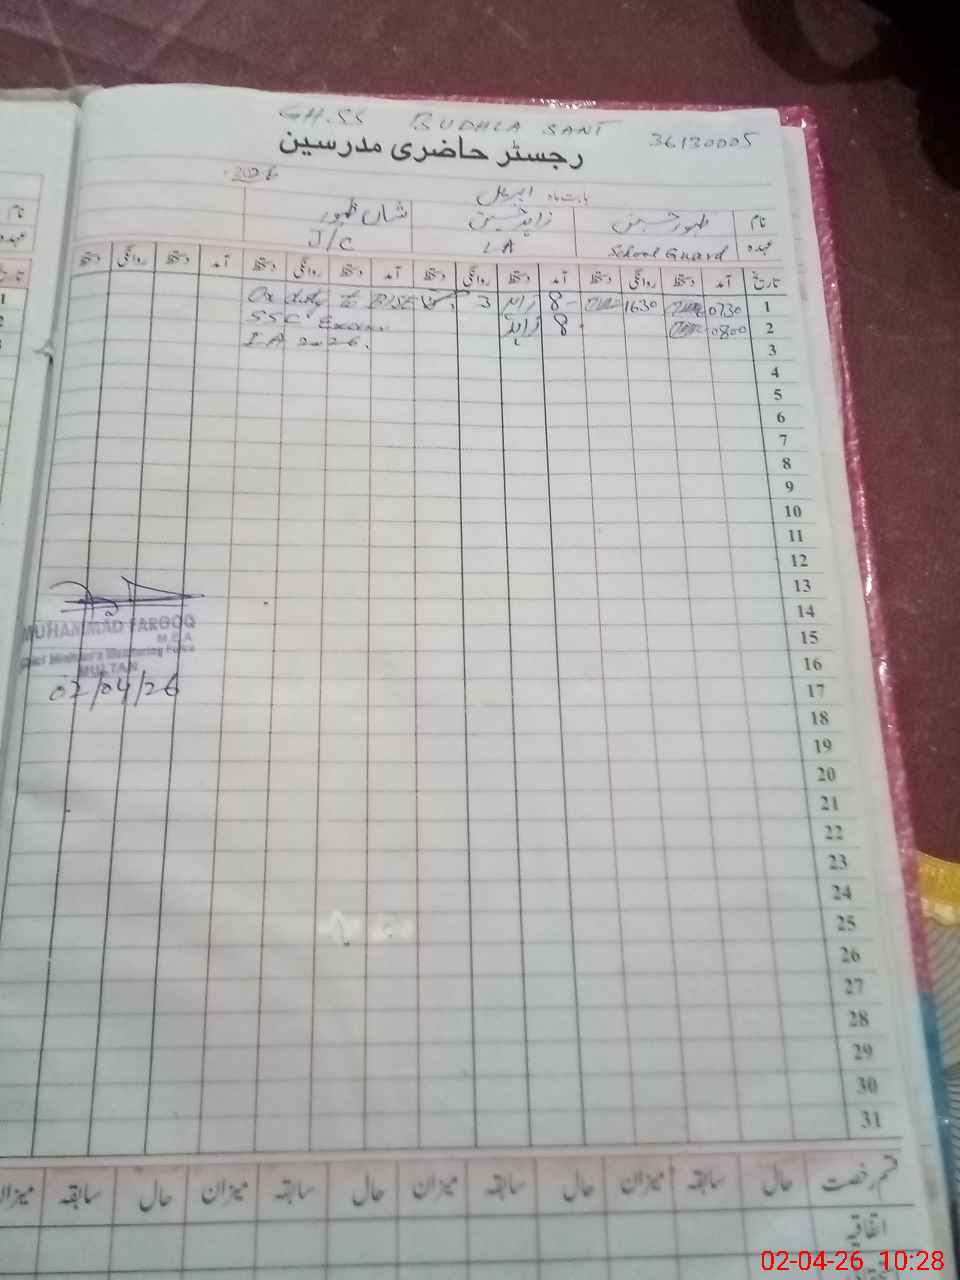 GHSS BUDHLA SANT 36130005
رجسٹر حاضری مدرسین
2026
بابت ماہ اپریل
نام ظہور حسین زاہد حسین شان ظہور
عہدہ School Guard LA J/C
تاریخ آمد دستخط روانگی دستخط آمد دستخط روانگی دستخط آمد دستخط روانگی دستخط آمد دستخط روانگی دستخط
1 0730 1630 8 زاہد 3 On duty to BISE
2 0800 8 زاہد SSC Exam
3 IA 2026.
4
5
6
7
8
9
10
11
12
13
14
15
16
17
18
19
20
21
22
23
24
25
26
27
28
29
30
31
MUHAMMAD FAROOQ
M.E.A
Chief Minister's Monitoring Force
MULTAN
02/04/26
قسم رخصت حال سابقہ میزان حال سابقہ میزان حال سابقہ میزان حال سابقہ میزان
اتفاقیہ
02-04-26 10:28